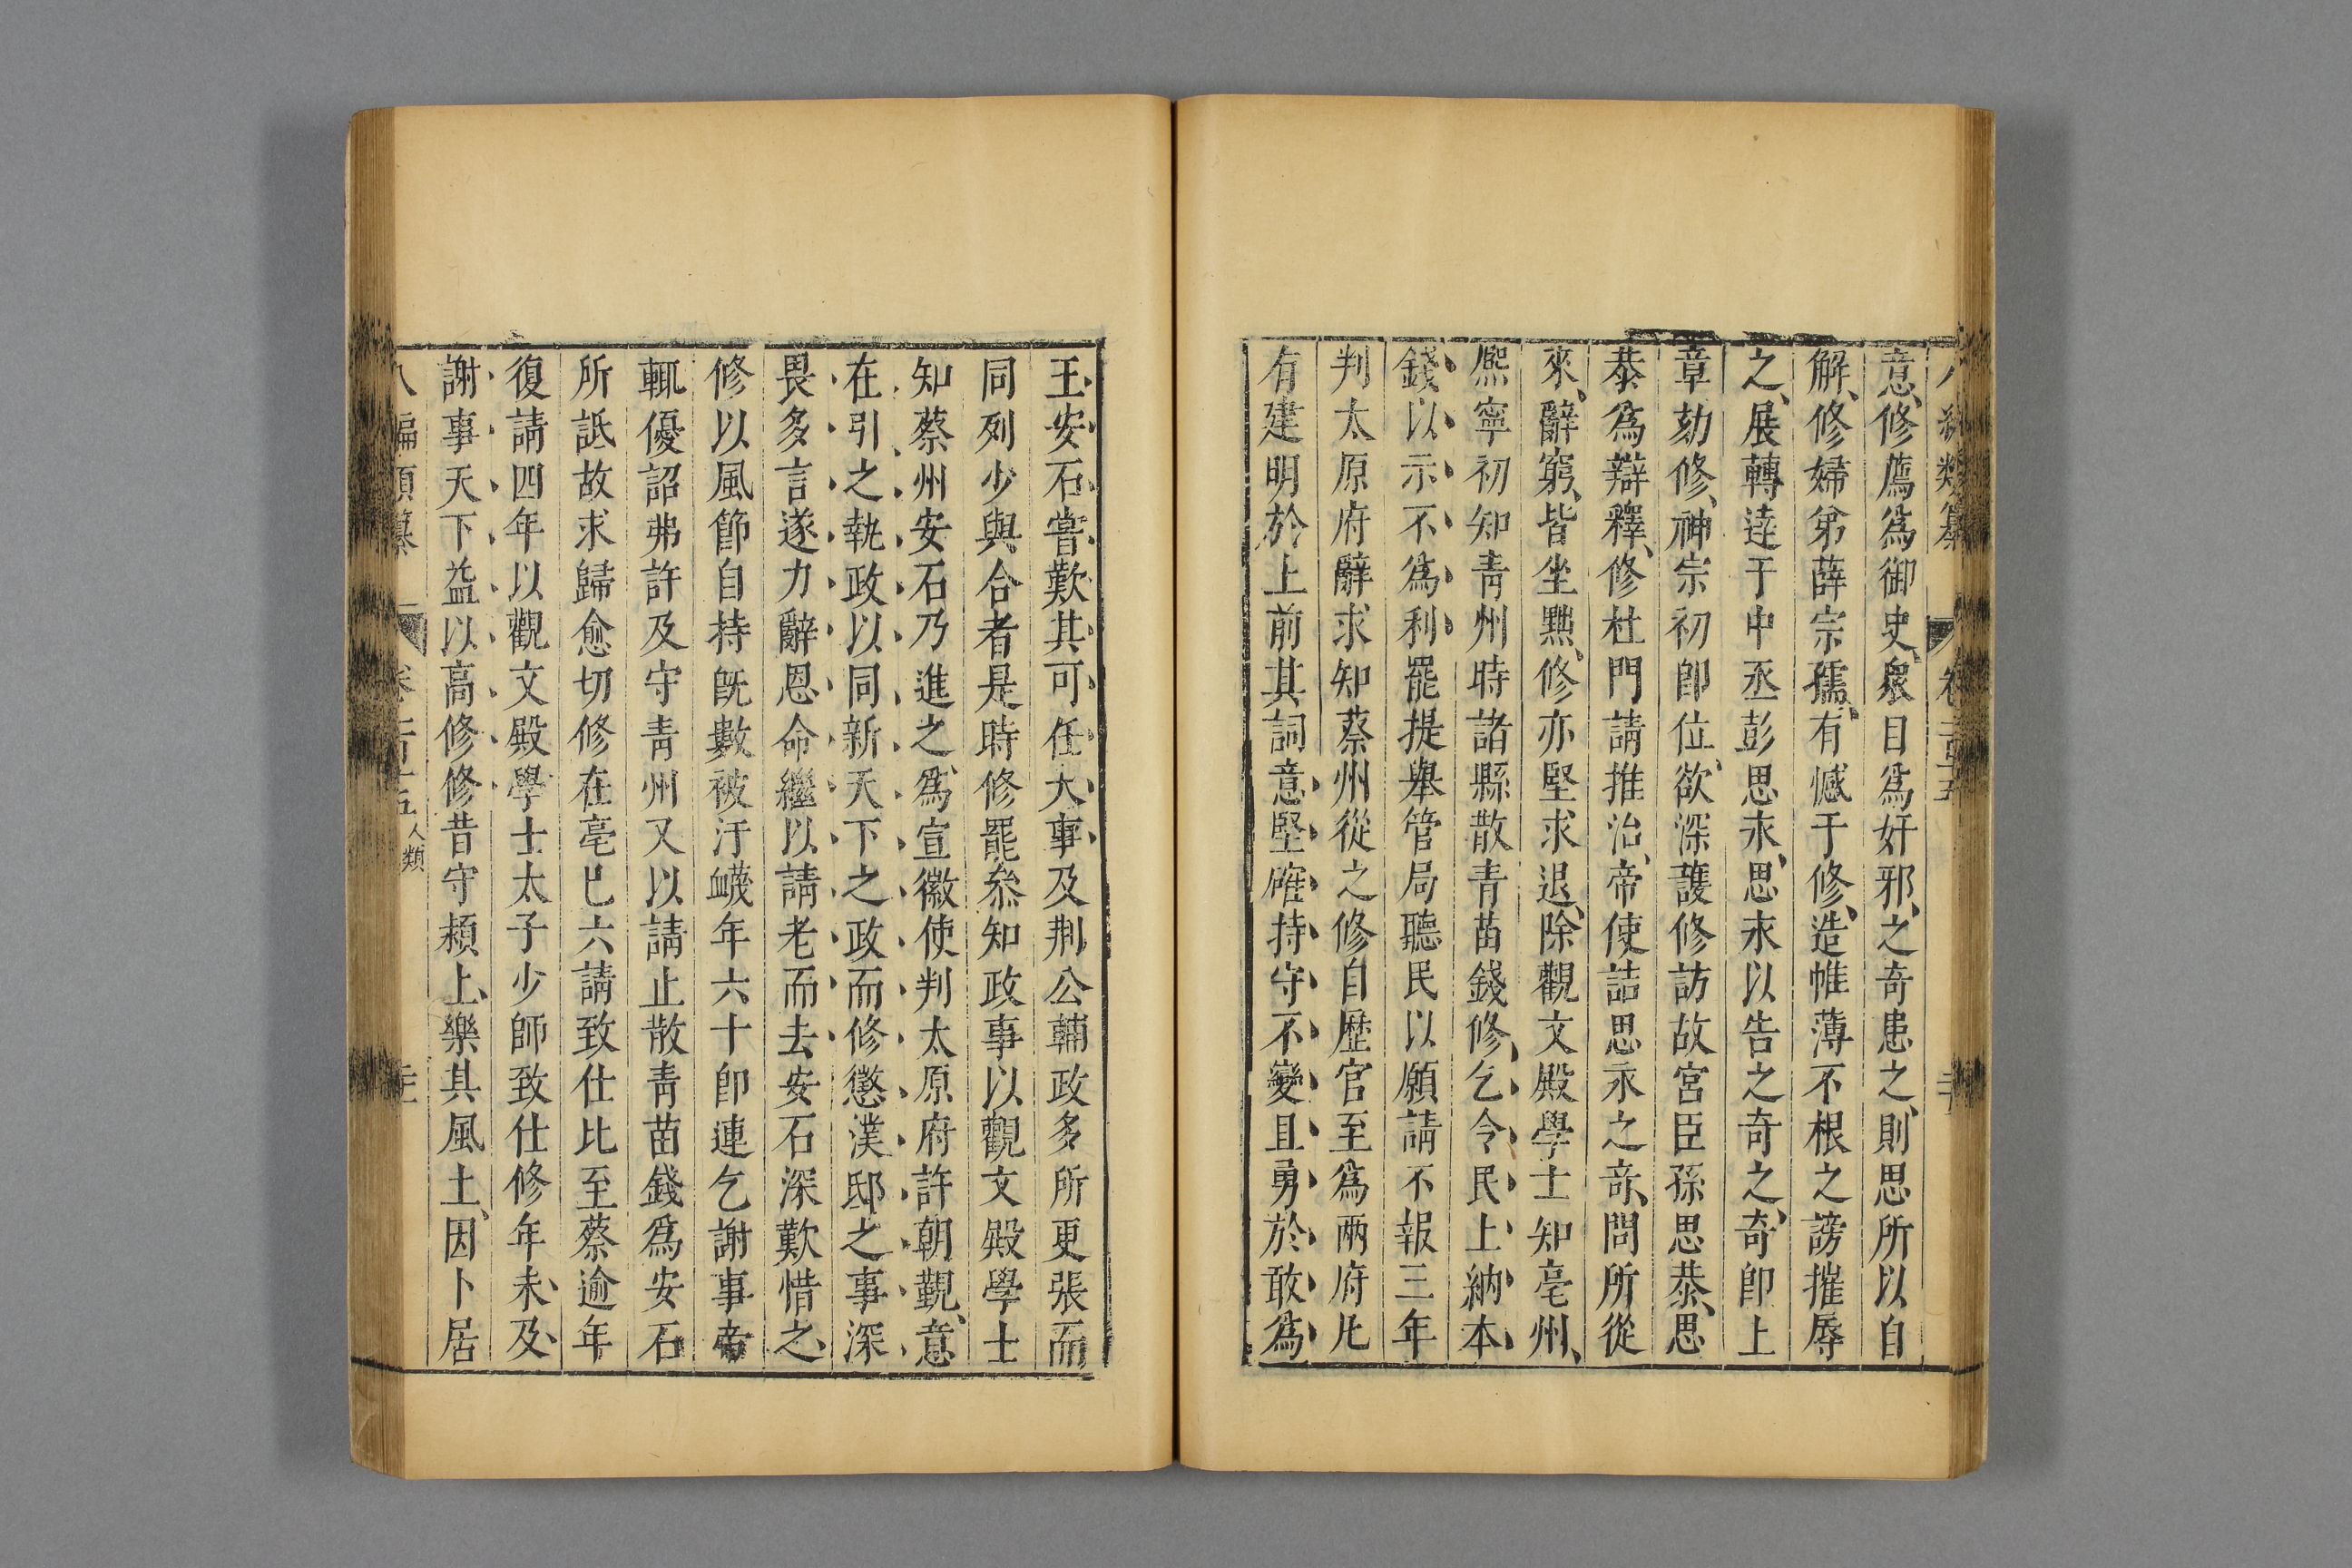 意修薦爲御史衆目爲奸邪之奇患之則思所以自
解修婦弟薛宗孺有憾于修造帷薄不根之謗摧辱
之展轉達于中丞彭思永思永以告之奇之奇卽上
章劾修神宗初卽位欲深護修訪故宮臣孫思恭思
恭爲辯釋修杜門請推治帝使詰思永之奇問所從
來辭窮皆坐黜修亦堅求退除觀文殿學士知亳州
熈寧初知青州時諸縣散青苗錢修乞令民上納本
錢以示不爲利罷提舉管局聽民以願請不報三年
判太原府辭求知蔡州從之修自歴官至爲兩府凡
有建明於上前其詞意堅確持守不變且勇於敢爲
王安石嘗歎其可任大事及荆公輔政多所更張而
同列少與合者是時修罷叅知政事以觀文殿學士
知蔡州安石乃進之爲宣徽使判太原府許朝覲意
在引之執政以同新天下之政而修懲濮邸之事深
畏多言遂力辭恩命繼以請老而去安石深歎惜之
修以風節自持旣數被汙衊年六十卽連乞謝事帝
輒優詔弗許及守青州又以請止散青苗錢爲安石
所詆故求歸愈切修在亳巳六請致仕比至蔡逾年
復請四年以觀文殿學士太子少師致仕修年未及
謝事天下益以高修修昔守潁上樂其風土因卜居
人類